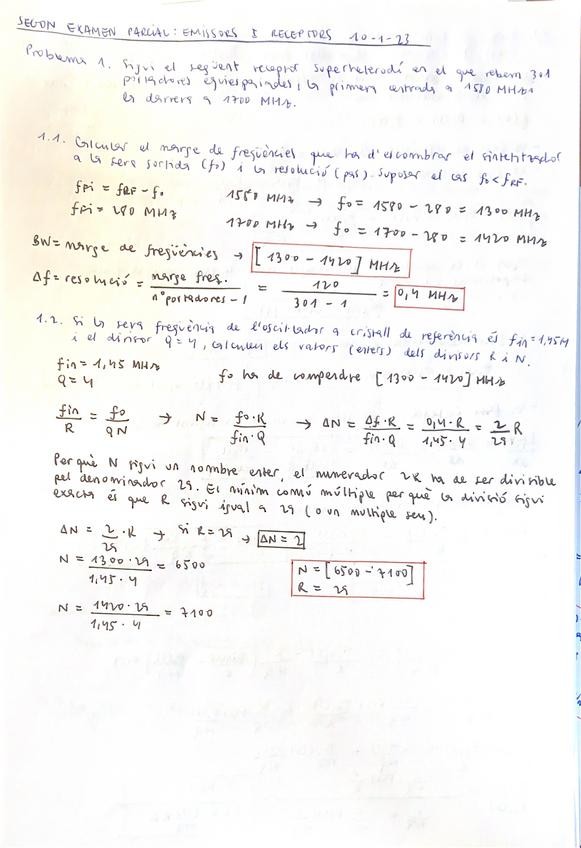 SEGON EXAMEN PARCIAL: EMISSORS I RECEPTORS 10-1-23
Problema 1. Sigui el següent receptor superheterodí en el que rebem 301
portadores equiespaiades, la primera centrada a 1580 MHz i
la darrera a 1700 MHz.
1.1. Calcular el marge de freqüències que ha d'escombrar el sintetitzador
a la seva sortida (fo) i la resolució (pas). Suposar el cas fo < fRF.
fFi = fRF - fo
1580 MHz → fo = 1580 - 280 = 1300 MHz
fFi = 280 MHz
1700 MHz → fo = 1700 - 280 = 1420 MHz
BW = marge de freqüències → [1300 - 1420] MHz
Δf = resolució = marge freq. / nº portadores - 1 = 120 / 301 - 1 = 0,4 MHz
1.2. Si la seva freqüència de l'oscil·lador a cristall de referència és fin = 1,45M
i el divisor Q = 4, calculeu els valors (enters) dels divisors R i N.
fin = 1,45 MHz
Q = 4
fo ha de compendre [1300 - 1420] MHz
fin / R = fo / QN → N = fo·R / fin·Q → ΔN = Δf·R / fin·Q = 0,4·R / 1,45·4 = 2/29 R
Perquè N sigui un nombre enter, el numerador 2R ha de ser divisible
pel denominador 29. El mínim comú múltiple perquè la divisió sigui
exacta és que R sigui igual a 29 (o un multiple seu).
ΔN = 2/29 · R → si R = 29 → ΔN = 2
N = 1300·29 / 1,45·4 = 6500
N = [6500 - 7100]
R = 29
N = 1420·29 / 1,45·4 = 7100